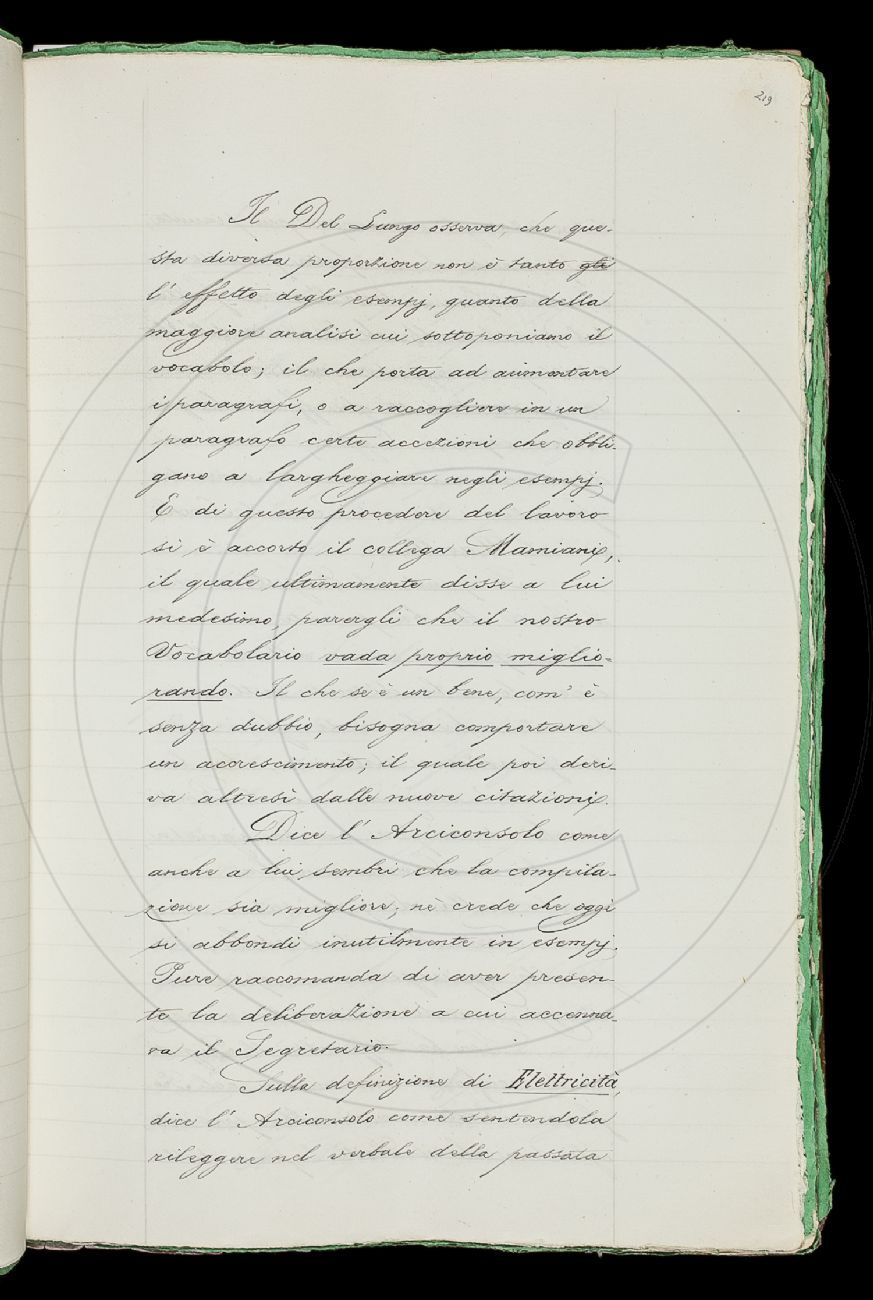 219
Il Del Lungo osserva, che que-
sta diversa proporzione non è tanto gli
l' effetto degli esempj, quanto della
maggiore analisi cui sottoponiamo il
vocabolo; il che porta ad aumentare
i paragrafi, o a raccogliere in un
paragrafo certe accezioni che obbli-
gano a largheggiare negli esempj.
E di questo procedere del lavoro
si è accorto il collega Mamiani,
il quale ultimamente disse a lui
medesimo, parergli che il nostro
Vocabolario vada proprio miglio-
rando. Il che se è un bene, com' è
senza dubbio, bisogna comportare
un accrescimento; il quale poi deri-
va altresì dalle nuove citazioni.
Dice l' Arciconsolo come
anche a lui sembri che la compila-
zione sia migliore; nè crede che oggi
si abbondi inutilmente in esempj.
Pure raccomanda di aver presen-
te la deliberazione a cui accenna-
va il Segretario.
Sulla definizione di Elettricità,
dice l' Arciconsolo come sentendola
rileggere nel verbale della passata